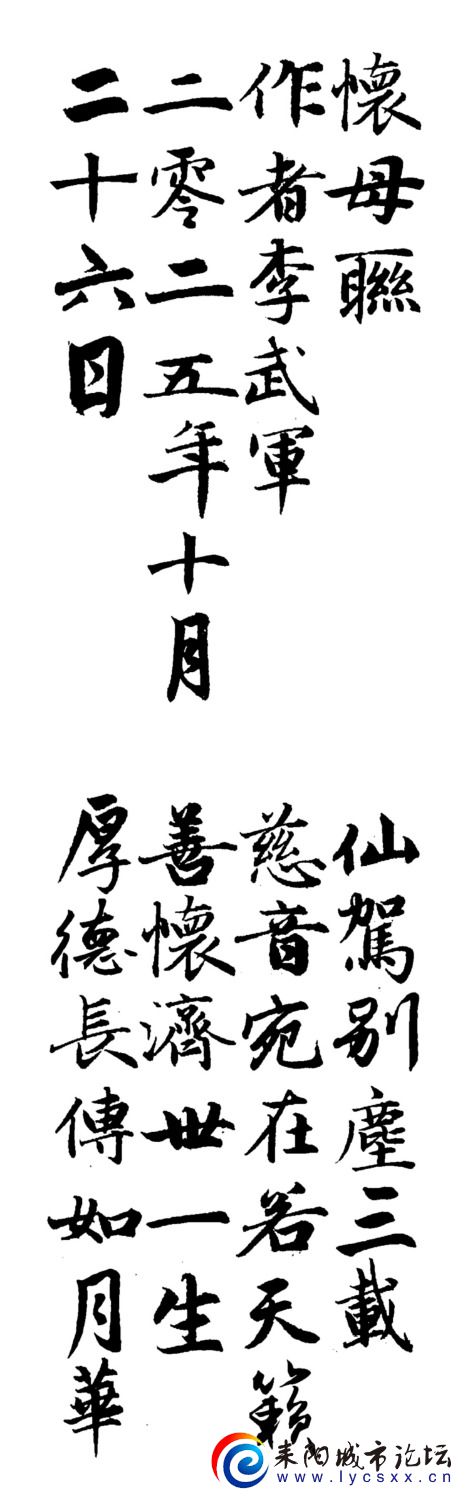 懷母聯
作者李武軍
二零二五年十月
二十六日
仙駕别塵三載
慈音宛在若天籟
善懷濟世一生
厚德長傳如月華
耒阳城市论坛
www.lycsxx.cn